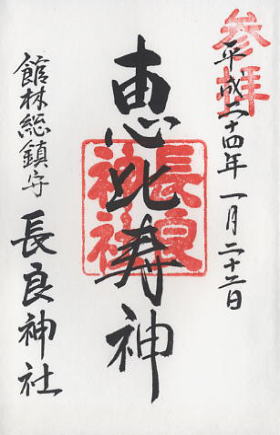 参拝
平成二十四年一月二十二日
恵比寿神
長良神社
館林総鎮守
長良神社